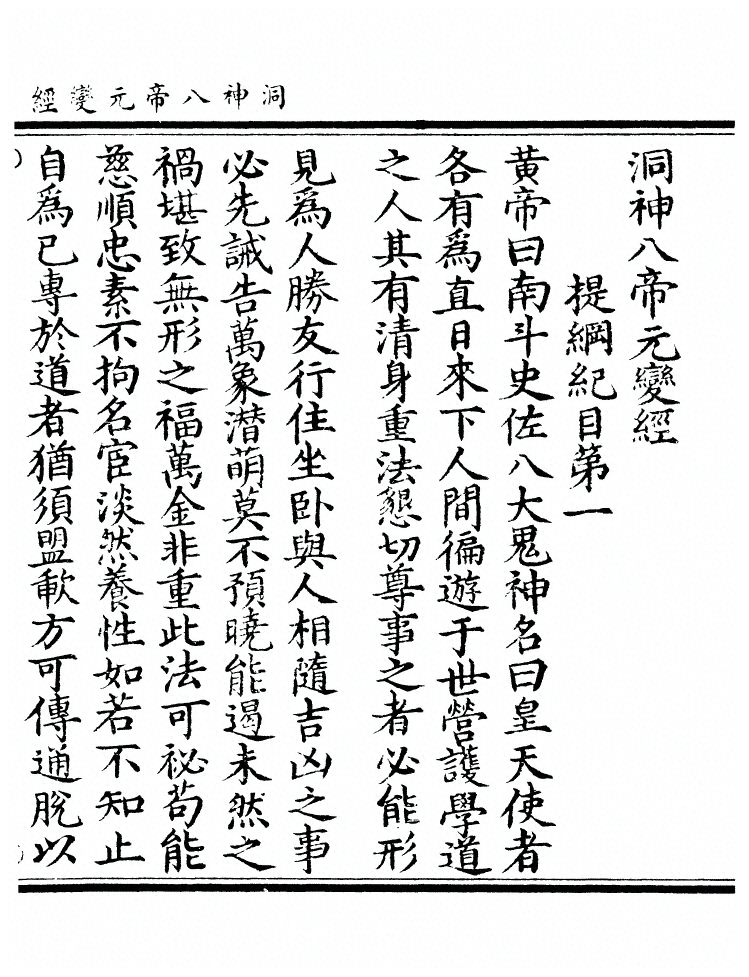 洞神八帝元變經
洞神八帝元變經
提綱紀目第一
黃帝曰南斗史佐八大鬼神名曰皇天使者
各有爲直日來下人間徧遊于世營護學道
之人其有清身重法懇切尊事之者必能形
見爲人勝友行住坐卧與人相隨吉凶之事
必先誡告萬象潜萌莫不預曉能遏未然之
禍堪致無形之福萬金非重此法可祕苟能
慈順忠素不拘名宦淡然養性如若不知止
自爲已專於道者猶須盟歃方可傳通脫以